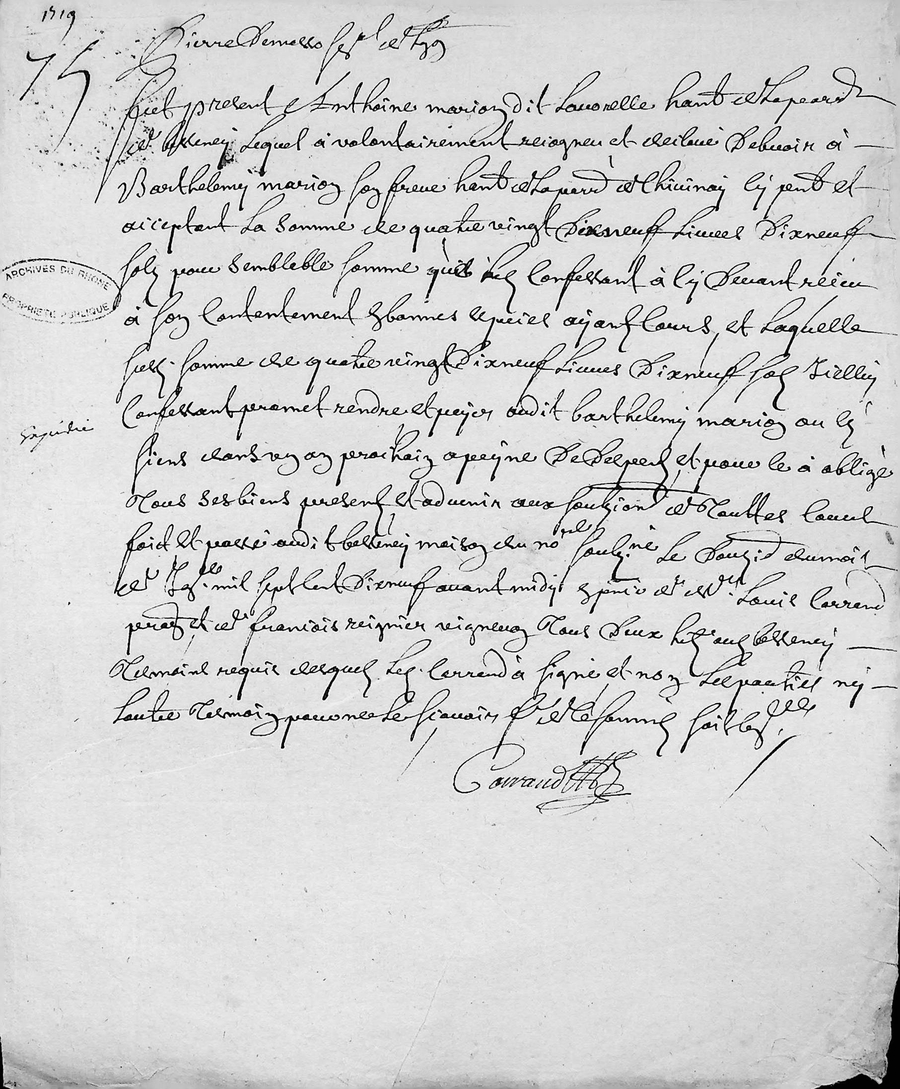 1719
75
Pierre Demasso
fut present Anthoine marion dit Lavorelle habt de la parr
de besseney Lequel a volontairement recogneu et declaré Debvoir à
Barthelemy marion son frere habt de la parr de Chivinay icy pnt et
acceptant La somme de quatre vingt Dixneuf Livres Dixneuf
sols pour semblable somme qu'il Confessant à icy Devant receu
à son Contentement Especes ayant Cours, et Laquelle
susd. somme de quatre vingt Dixneuf Livres Dixneuf sols Icelluy
Confessant promet rendre et payer audit barthelemy marion ou les
siens dans un an prochain a peyne De Despens et pour ce a obligé
Tous ses biens presents et advenir aux de Touttes Cours
faict et passé audit besseney maison du no.re soubz.né Le Douzie du mois
de mil sept Cent Dixneuf avant midy Louis Corrand
et de francois reignier vigneron Tous Deux hts audt besseney
Tesmoins requis desquels Led. Corrand à signé, et non Les parties ny
Lautre Tesmoin pour ne Le scavoir de ce sommés
ARCHIVES DU RHONE
PROPRIÉTÉ PUBLIQUE
Expedié
Corrand